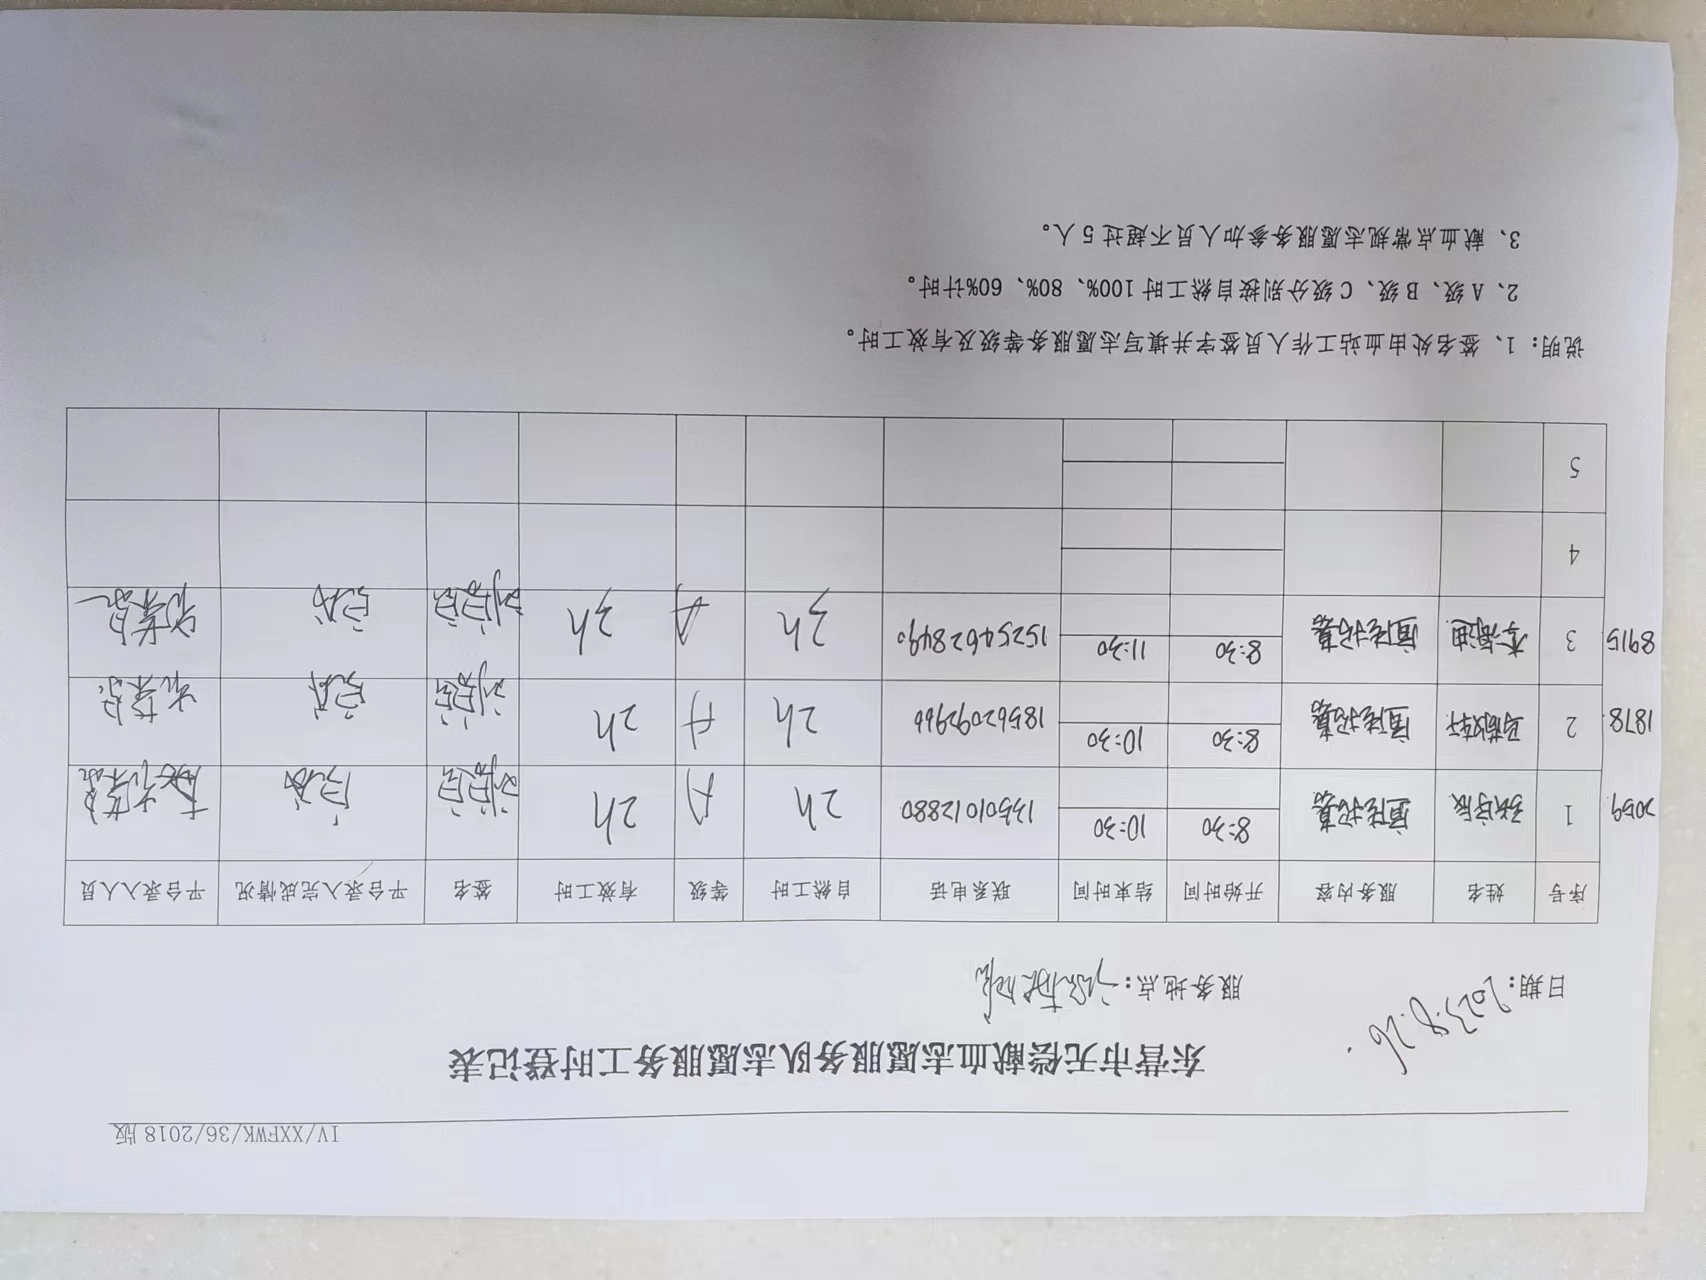 IV/XXFWK/36/2018 版
东营市无偿献血志愿服务队志愿服务工时登记表
日期：2023.8.26. 服务地点：
序号 姓名 服务内容 开始时间 结束时间 联系电话 自然工时 等级 有效工时 签名 平台录入完成情况 平台录入人员
1 宣传招募 8:30 10:30 13501012880 2h A 2h 完成
1878 2 宣传招募 8:30 10:30 18562092966 2h A 2h 完成
8915 3 李海迪 宣传招募 8:30 11:30 15254628490 3h A 3h 完成
4
5
说明：1、签名处由血站工作人员签字并填写志愿服务等级及有效工时。
2、A 级、B 级、C 级分别按自然工时 100%、80%、60%计时。
3、献血点常规志愿服务参加人员不超过 5 人。